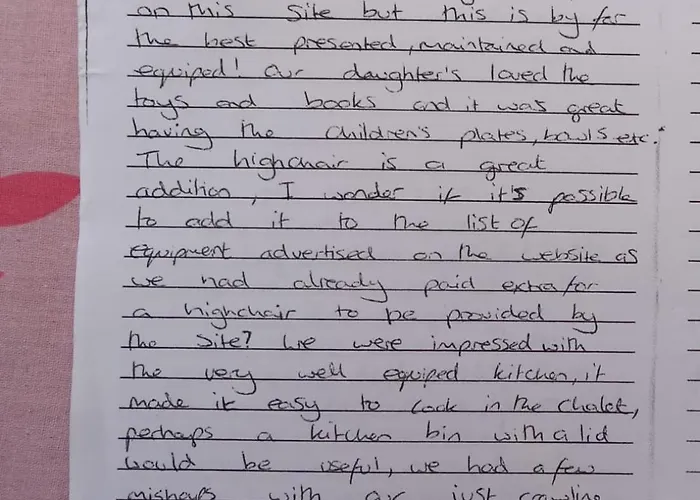 on this site but this is by far
the best presented, maintained and
equiped! Our daughter's loved the
toys and books and it was great
having the children's plates, bowls etc.
The highchair is a great
addition, I wonder if it's possible
to add it to the list of
equipment advertised on the website as
we had already paid extra for
a highchair to be provided by
the site? We were impressed with
the very well equiped kitchen, it
made it easy to cook in the chalet,
perhaps a kitchen bin with a lid
would be useful, we had a few
mishaps with our just crawling